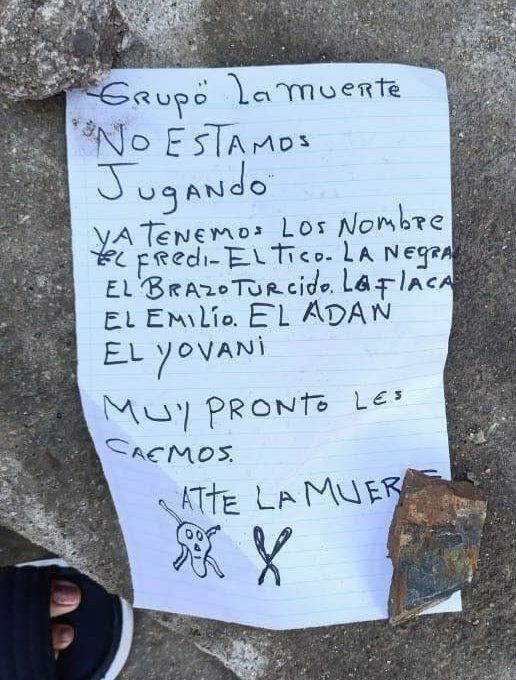 GRUPO LA MUERTE
NO ESTAMOS
JUGANDO
YA TENEMOS LOS NOMBRE
EL FREDI-EL TICO. LA NEGRA
EL BRAZO TURCIDO. LA FLACA
EL EMILIO. EL ADAN
EL YOVANI
MUY PRONTO LES
CAEMOS.
ATTE LA MUERTE